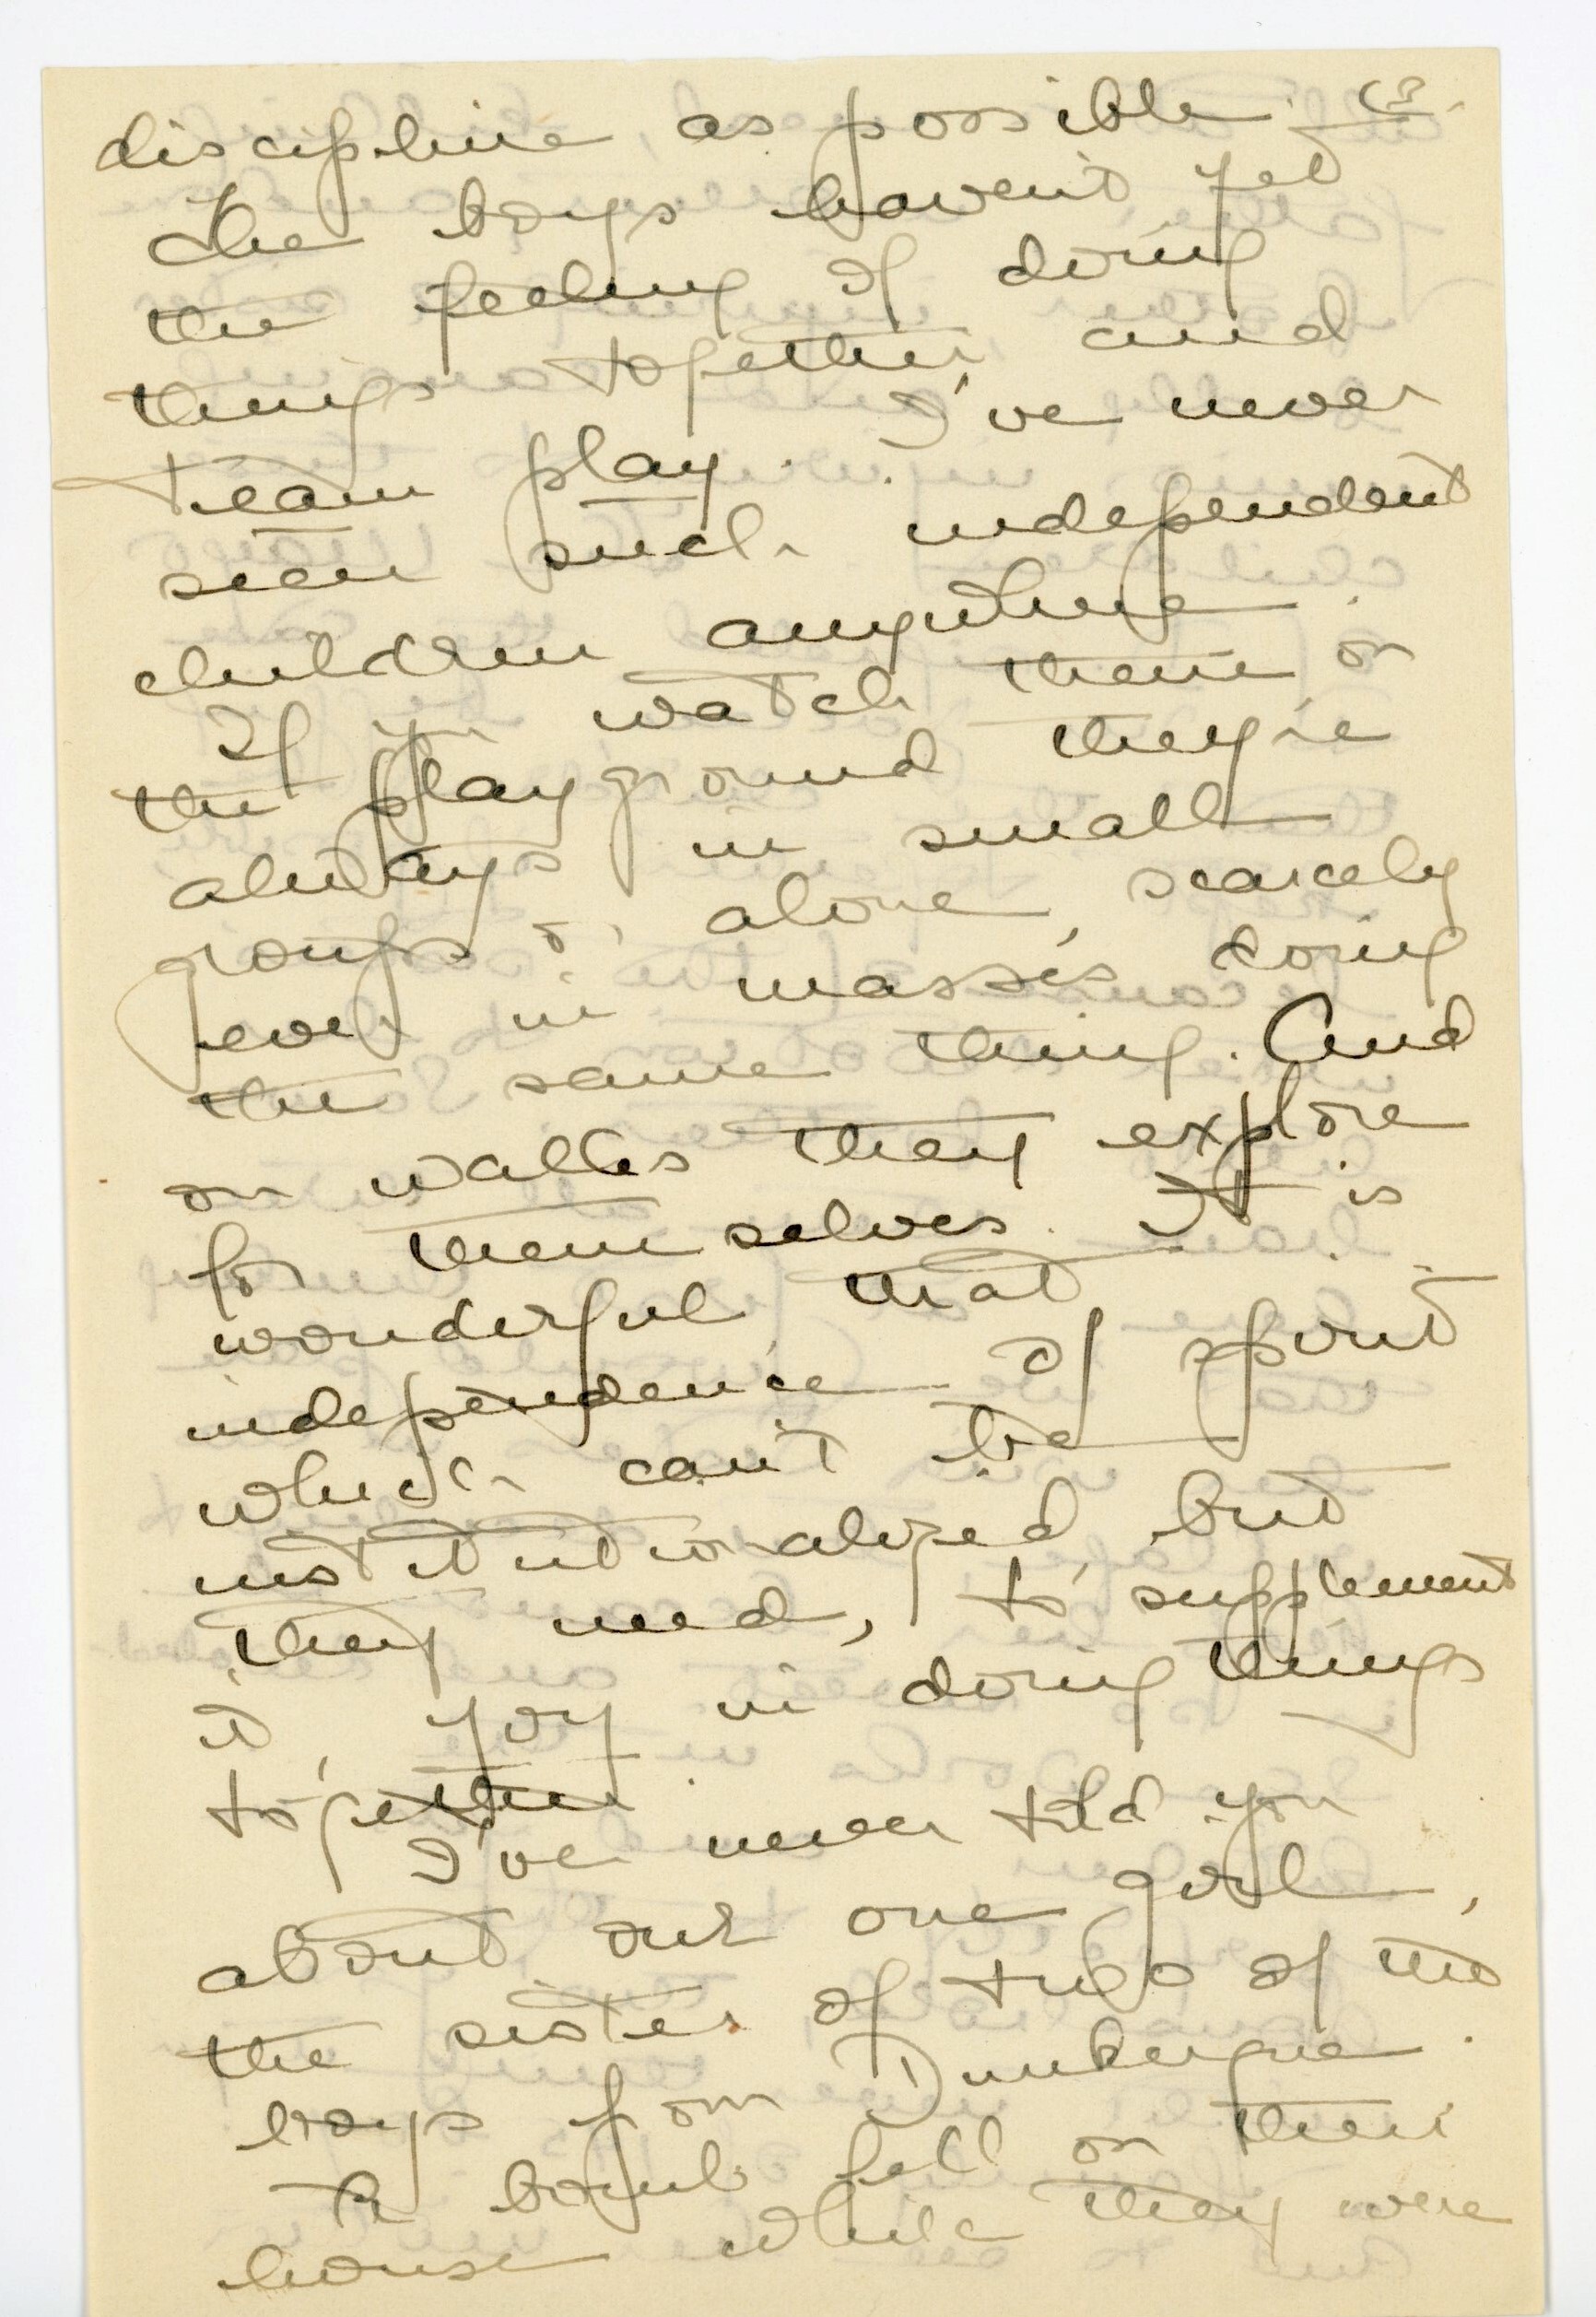 discipline as possible. (3.
The boys haven't yet
the feeling of doing
things together, and
team play. I've never
seen such independent
children anywhere.
If you watch them on
the playground they're
always in small
groups or alone, scarcely
ever in masses, doing
the same thing. And
on walks they explore
for themselves. It is
wonderful that
independence of spirit
which can't be
institutionalized, but
they need, to supplement
it, joy in doing things
together.
I've never told you
about our one girl,
the sister of two of the
boys from Dunkerque.
A bomb fell on their
house while they were